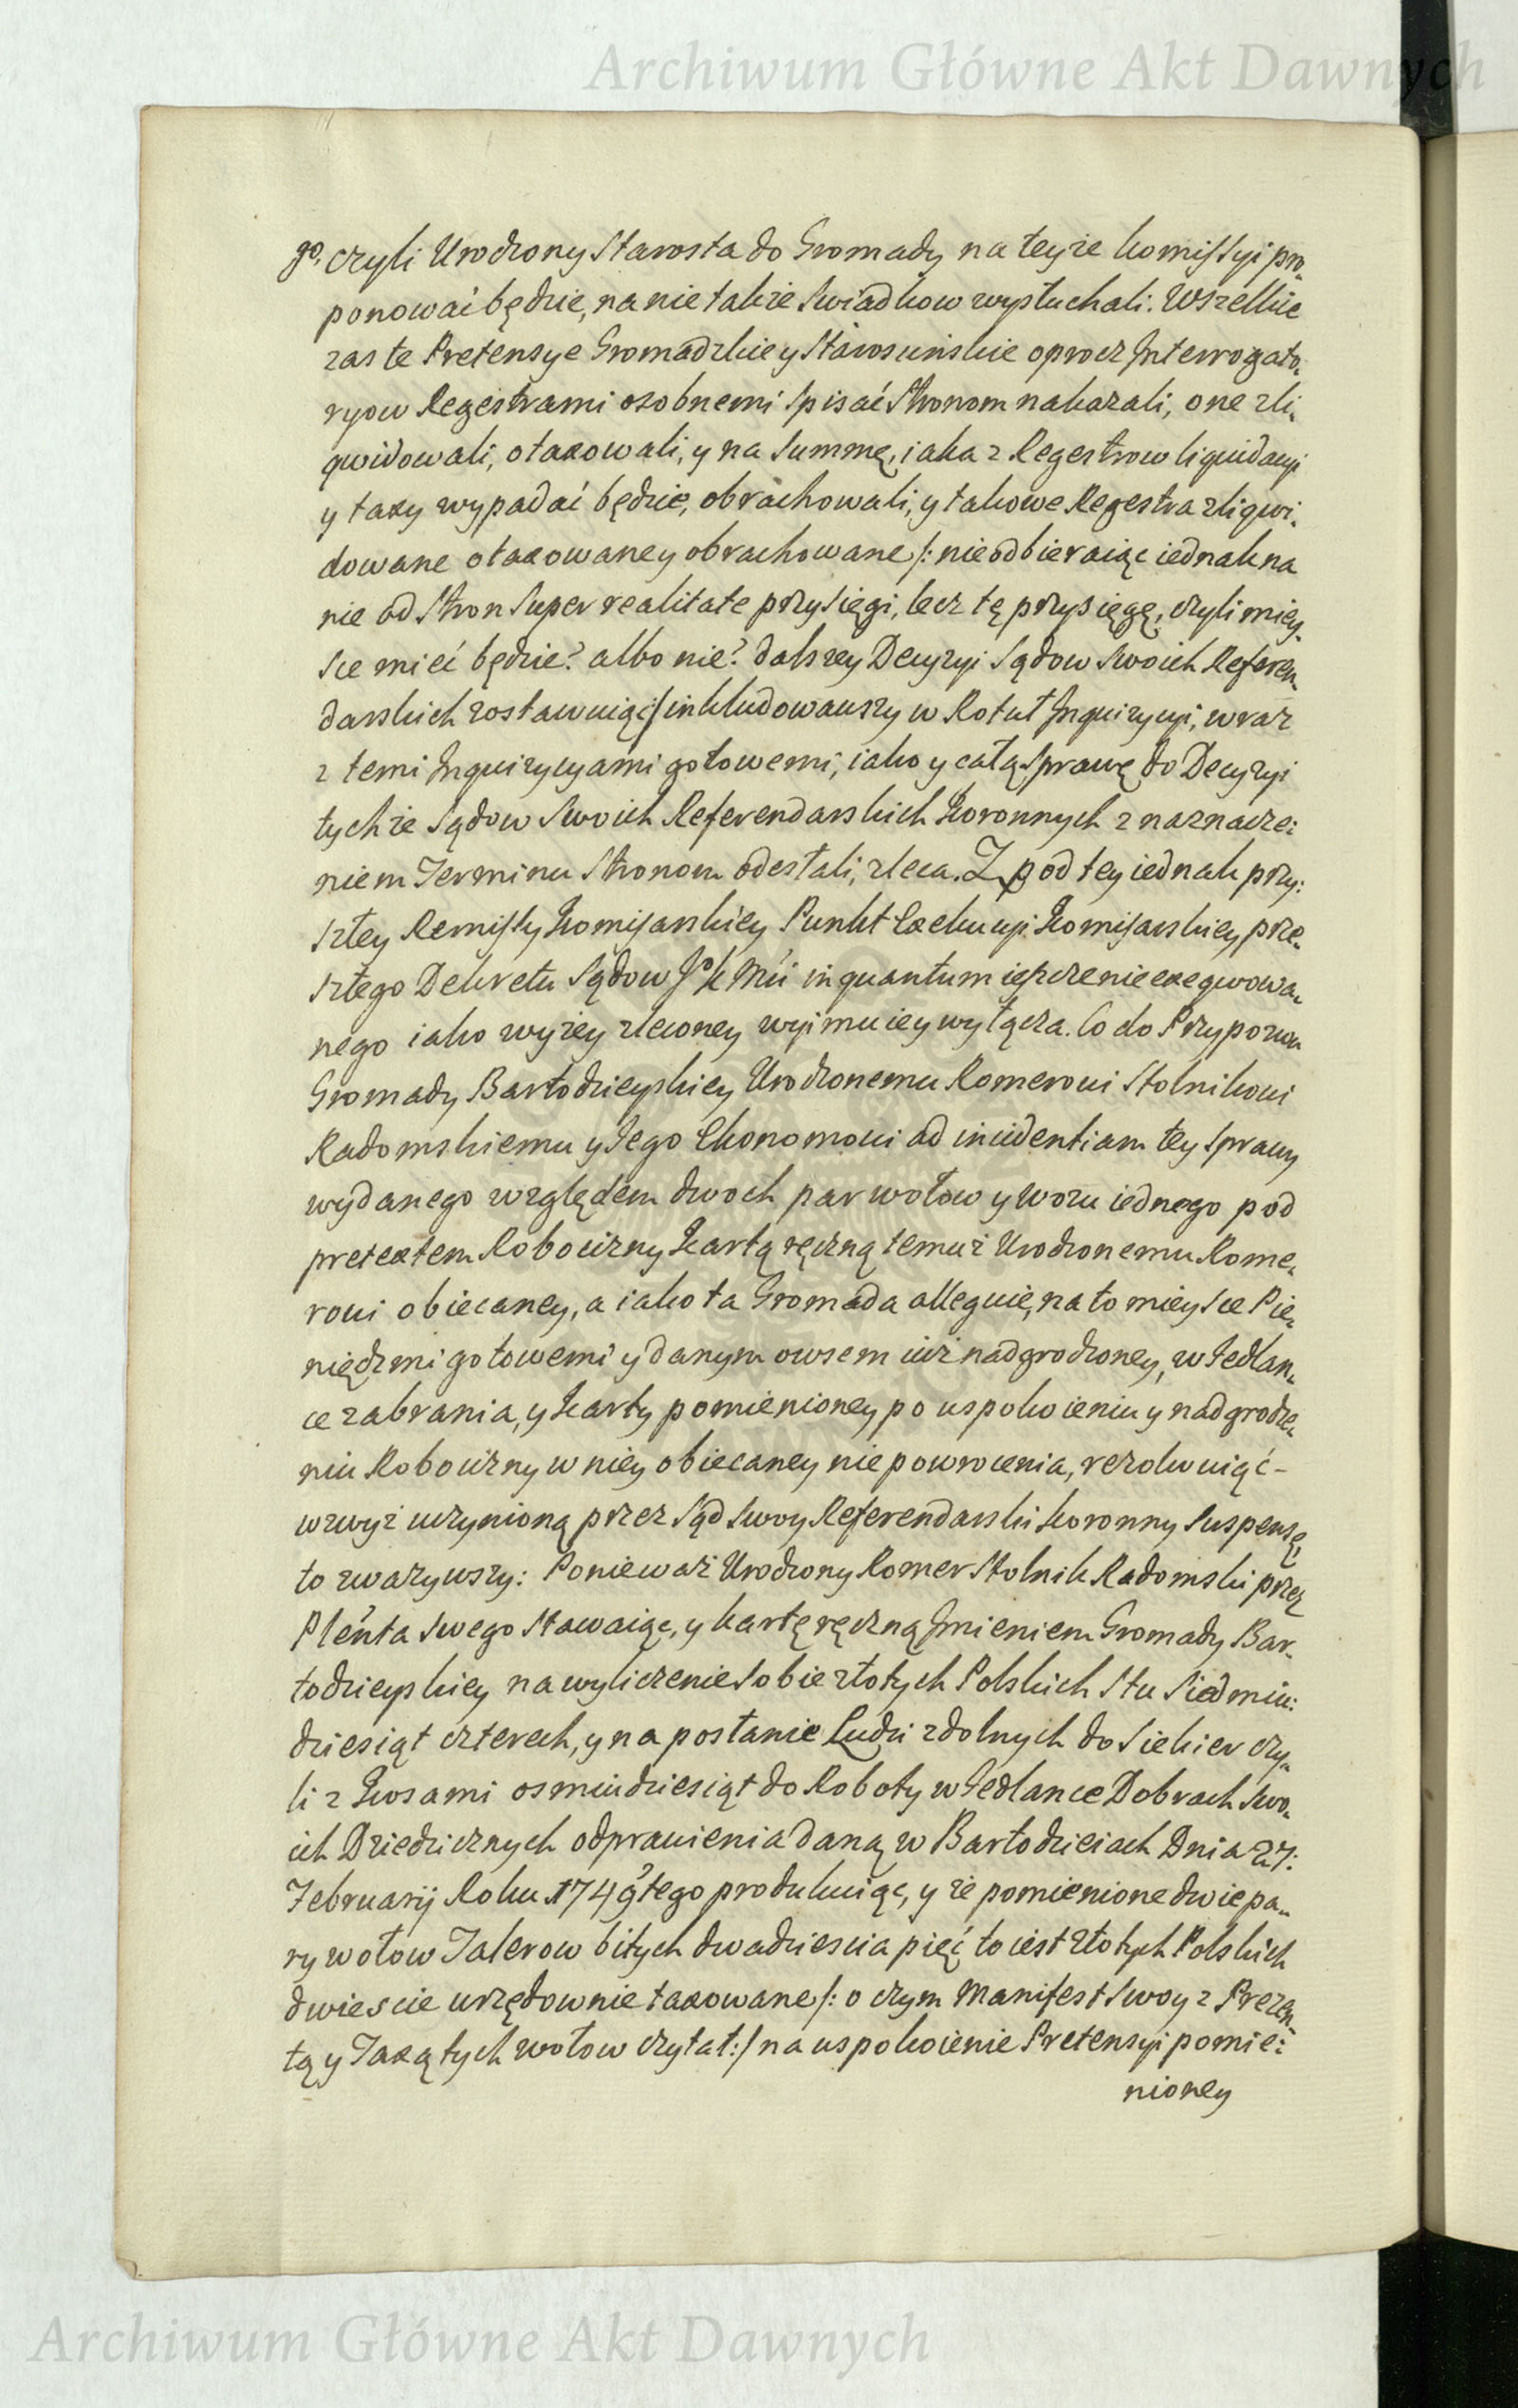 Archiwum Główne Akt Dawnych
go, czyli Urodzony Starosta do Gromady na teyże kommissyi pro„
ponować będzie, na nie takze Swiadkow wysłuchali. Wszelkie
zas te Pretensye Gromadzkie y Staroscińskie oprocz Interrogato„
ryow Regestrami osobnemi Spisać Stronom nakazali, one zli„
qwidowali, otaxowali, y na Summę, iaka z Regestrow liquidacyi
y taxy wypadać będzie, obrachowali, y takowe Regestra zliqwi„
dowane otaxowane y obrachowane /: nie odbieraiąc iednak na
nie od Stron Super realitate przysięgi, lecz tę przysięgę, czyli miey„
sce mieć będzie? albo nie? dalszey Decyzyi Sądow Swoich Referen„
darskich zostawuiąc :/ inkludowawszy w Rotuł Inquizycyi, wraz
z temi Inquizycyami gotowemi, iako y całą Sprawę do Decyzyi
tychże Sądow Swoich Referendarskich Koronnych z naznacze:
niem Terminu Stronom odesłali, zleca. Z pod tey iednak przy:
szłey Remissy Komisarskiey Punkt Exekucyi Komisarskiey prze„
szłego Dekretu Sądow J°K Mći in quantum ieszcze nie exeqwowa„
nego iako wyżey zleconey wyimuie y wyłącza. Co do Przypozwu
Gromady Bartodzieyskiey Urodzonemu Romerowi Stolnikowi
Radomskiemu y Jego Ekonomowi ad incidentiam tey Sprawy
wydanego względem dwoch par wołow y wozu iednego pod
pretextem Robocizny Kartą ręczną temuż Urodzonemu Rome„
rowi obiecaney, a iako ta Gromada alleguie, na to mieysce Pie„
niędzmi gotowemi y danym owsem iuż nadgrodzoney, w Jedlan„
ce zabrania, y Karty pomienioney po uspokoieniu y nadgrodze„
niu Robocizny w niey obiecaney nie powrocenia, rezolwuiąć-
wzwyż uczynioną przez Sąd Swoy Referendarski Koronny Suspensę,
to zważywszy: Ponieważ Urodzony Romer Stolnik Radomski przez
Pleńta Swego Stawaiąc, y kartę ręczną Jmieniem Gromady Bar„
todzieyskiey na wyliczenie Sobie złotych Polskich Stu Siedmiu:
dziesiąt czterech, y na posłanie Ludzi zdolnych do Siekier czy„
li z Kosami osmiudziesiąt do Roboty w Jedlance Dobrach Swo„
ich Dziedzicznych odprawienia daną w Bartodzieiach Dnia 27:
Februarij Roku 1749tego produkuiąc, y że pomienione dwie pa„
ry wołow Talerow bitych dwadziescia pięć to iest złotych Polskich
dwiescie urzędownie taxowane /: o czym Manifest Swoy z Prezen„
tą y Taxą tych wołow czytał :/ na uspokoienie Pretensyi pomie:
nioney
Archiwum Główne Akt Dawnych